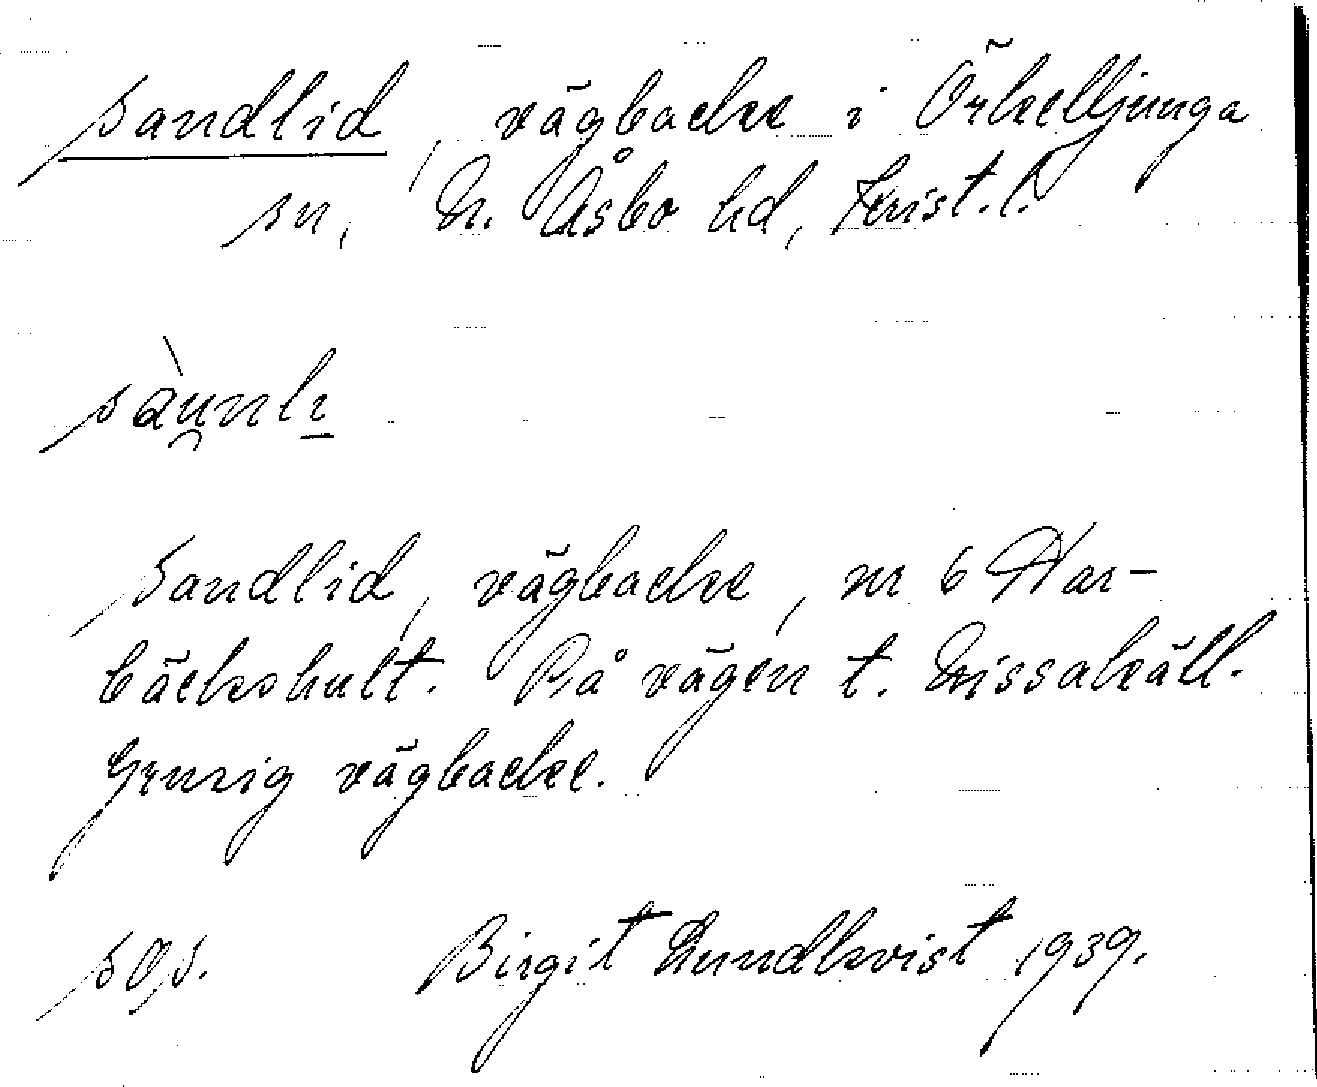 sandlid, vägbacke i Örkelljunga
sn, N. Åsbo hd, Krist. l.
sàu̯nlı̱
Sandlid, vägbacke, nr 6 Har-
bäckshult. På vägen t. Krissakäll.
Grusig vägbacke.
sṣ. Birgit Lundkvist 1939.